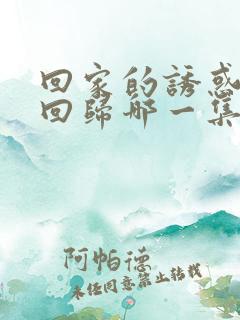 回家的誘惑
回歸那一集
阿帕德
未经同意禁止转载